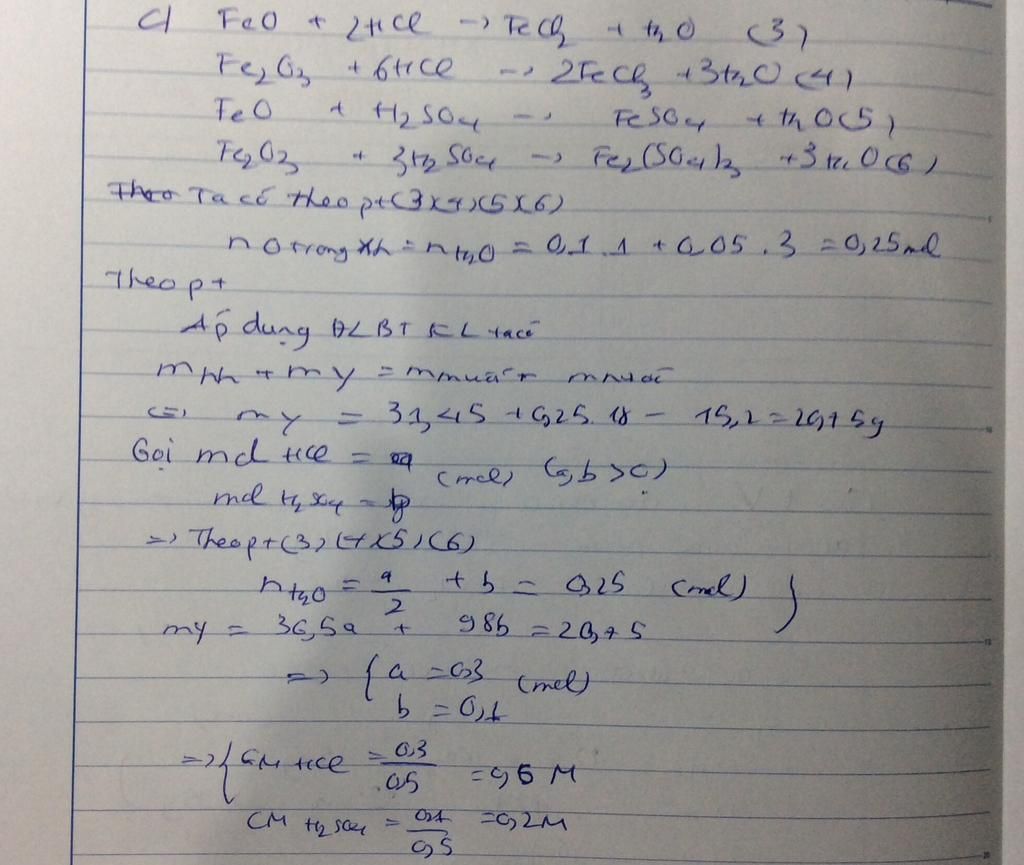 c) FeO + 2HCl -> FeCl2 + H2O (3)
Fe2O3 + 6HCl -> 2FeCl3 + 3H2O (4)
FeO + H2SO4 -> FeSO4 + H2O (5)
Fe2O3 + 3H2SO4 -> Fe2(SO4)3 + 3H2O (6)
Theo Ta có theo pt (3)(4)(5)(6)
n O trong hh = nH2O = 0,1.1 + 0,05.3 = 0,25 mol
Theo pt
Áp dụng ĐLBTKL ta có
mhh + mY = mmuối + mnước
<=> mY = 31,45 + 0,25.18 - 15,2 = 20,75g
Gọi mol HCl = a (mol) (a,b > 0)
mol H2SO4 = b
=> Theo pt (3)(4)(5)(6)
nH2O = a/2 + b = 0,25 (mol) }
mY = 36,5a + 98b = 20,75
=> { a = 0,3 (mol)
b = 0,1
=> { CM HCl = 0,3/0,5 = 0,6 M
CM H2SO4 = 0,1/0,5 = 0,2M